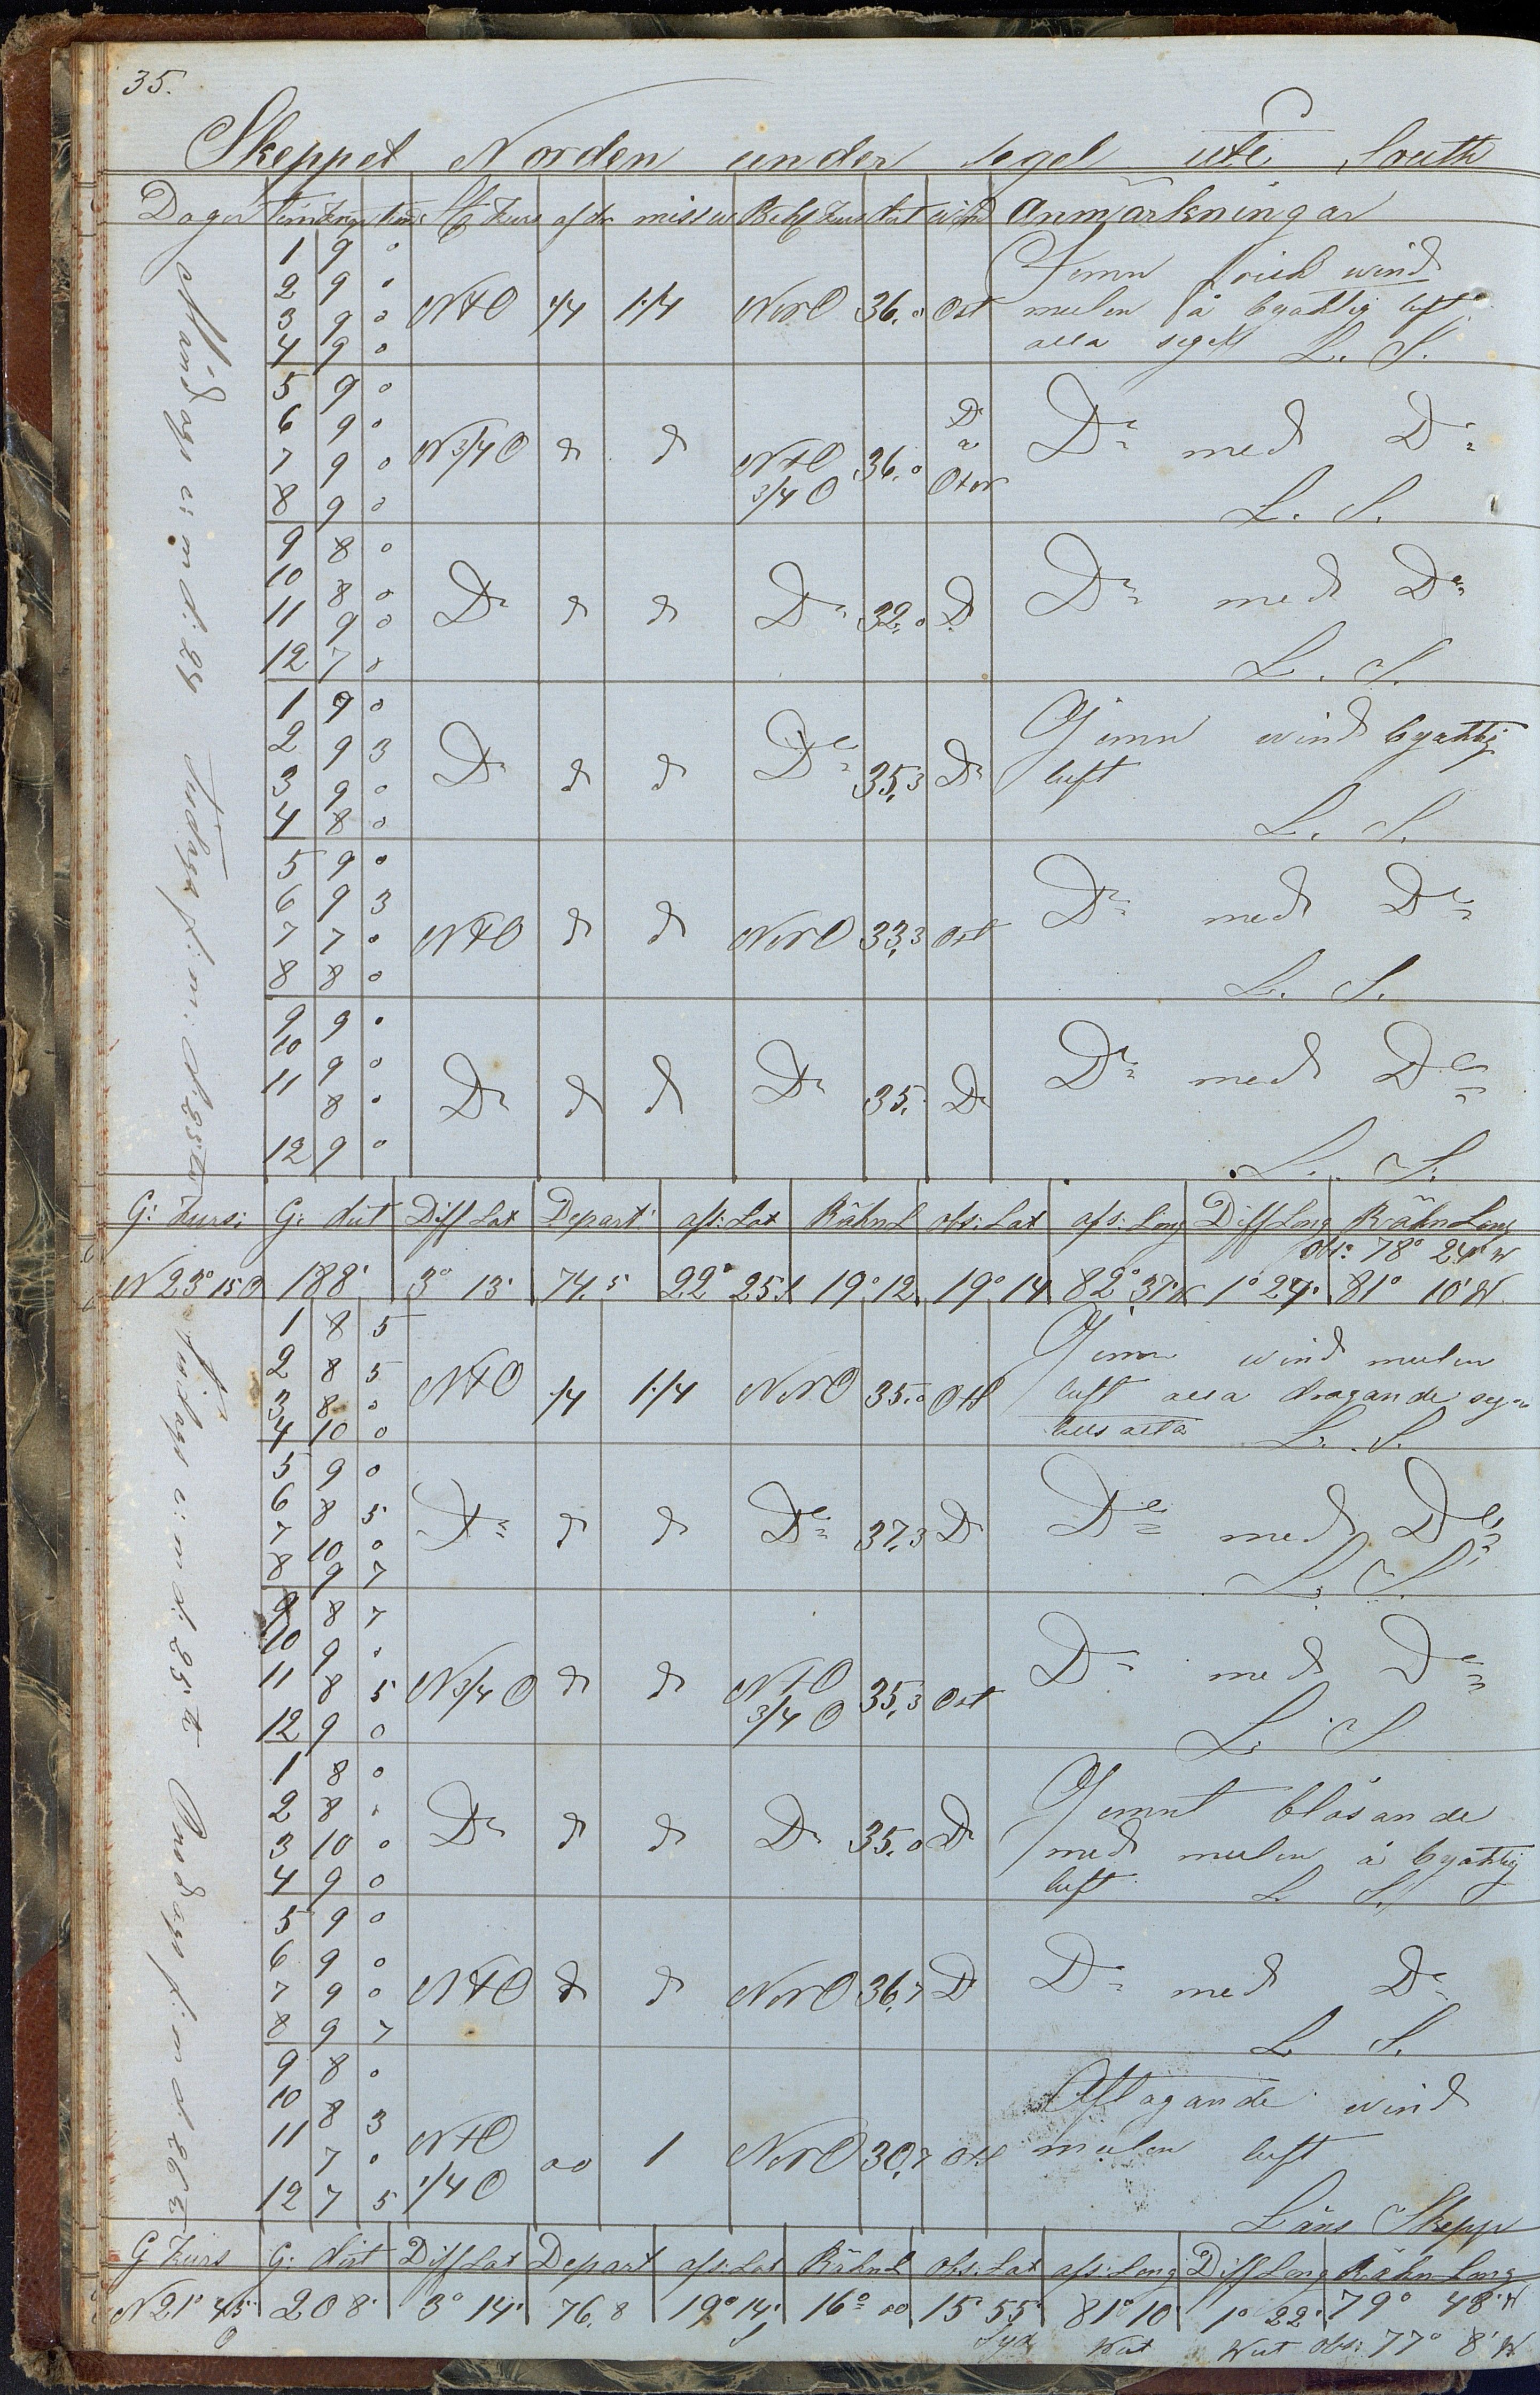 35.
Skeppet Norden under segel ute South
Dagar tim knop Kurs afdr missw Kurs dist wind Anmärkningar
Måndags e: m d: 24
Tisdags f: m: d. 25te
1 9 0
2 9 0
3 9 0
4 9 0
NtO 1/4 1.1/4 NNO 36.0 Ost
Jemn frisk wind
mulen å byaktig luft
alla segel L. S.
5 9 0
6 9 0
7 9 0
8 9 0
N 3/4 O d d NtO 3/4 O 36.0 D å OtN
Do med Do
L. S.
9 8 0
10 8 0
11 9 0
12 7 0
Do d d Do 32.0 D
Do med Do
L. S.
1 9 0
2 9 3
3 9 0
4 8 0
Do d d Do 35.3 Do
Jemn wind byaktig
luft
L. S.
5 9 0
6 9 3
7 7 0
8 8 0
NtO d d NNO 33.3 Ost
Do med Do
L. S.
9 9 0
10 9 0
11 8 0
12 9 0
Do d d Do 35. Do
Do med Do
L. S.
G: Kurs: G: dist Diff Lat Depart afs: Lat Räkn L obs: Lat afs: Long Diff Long Räkn Long
Obs: 78° 24' W
N 23° 15 O 188' 3° 13' 74.5 22° 25 S 19° 12 19° 14 82° 37 W 1° 27' 81° 10' W
Tisdags e: m d. 25te
Onsdags f: m d. 26te
1 8 5
2 8 5
3 8 0
4 10 0
NtO 1/4 1.1/4 NNO 35.0 Ost
Jemn wind mulen
luft alla dragande seg
L. S.
5 9 0
6 8 5
7 10 0
8 9 7
Do d d Do 37.3 D
Do med Do
L. S.
9 8 7
10 9 0
11 8 5
12 9 0
N 3/4 O d d NtO 3/4 O 35.3 Ost
Do med Do
L. S
1 8 0
2 8 0
3 10 0
4 9 0
Do d d Do 35.0 D
Jemnt blåsande
med mulen å byaktig
luft L. S.
5 9 0
6 9 0
7 9 0
8 9 7
NtO d d NNO 36.7 D
Do med Do
L S.
9 8 0
10 8 3
11 7 0
12 7 5
NtO 1/4 O 00 1 NNO 30.7 Ost
Aftagande wind
mulen luft
Läns Skepp
G Kurs G: dist Diff Lat Depart afs: Lat Räkn L Obs: Lat afs: Long Diff Long Räkn Long
N 21° 45' O 208' 3° 14' 76.8 19° 14' S 16° 00 15 55' Syd 81° 10' West 1° 22' West 79° 48' W
Obs: 77° 8' W